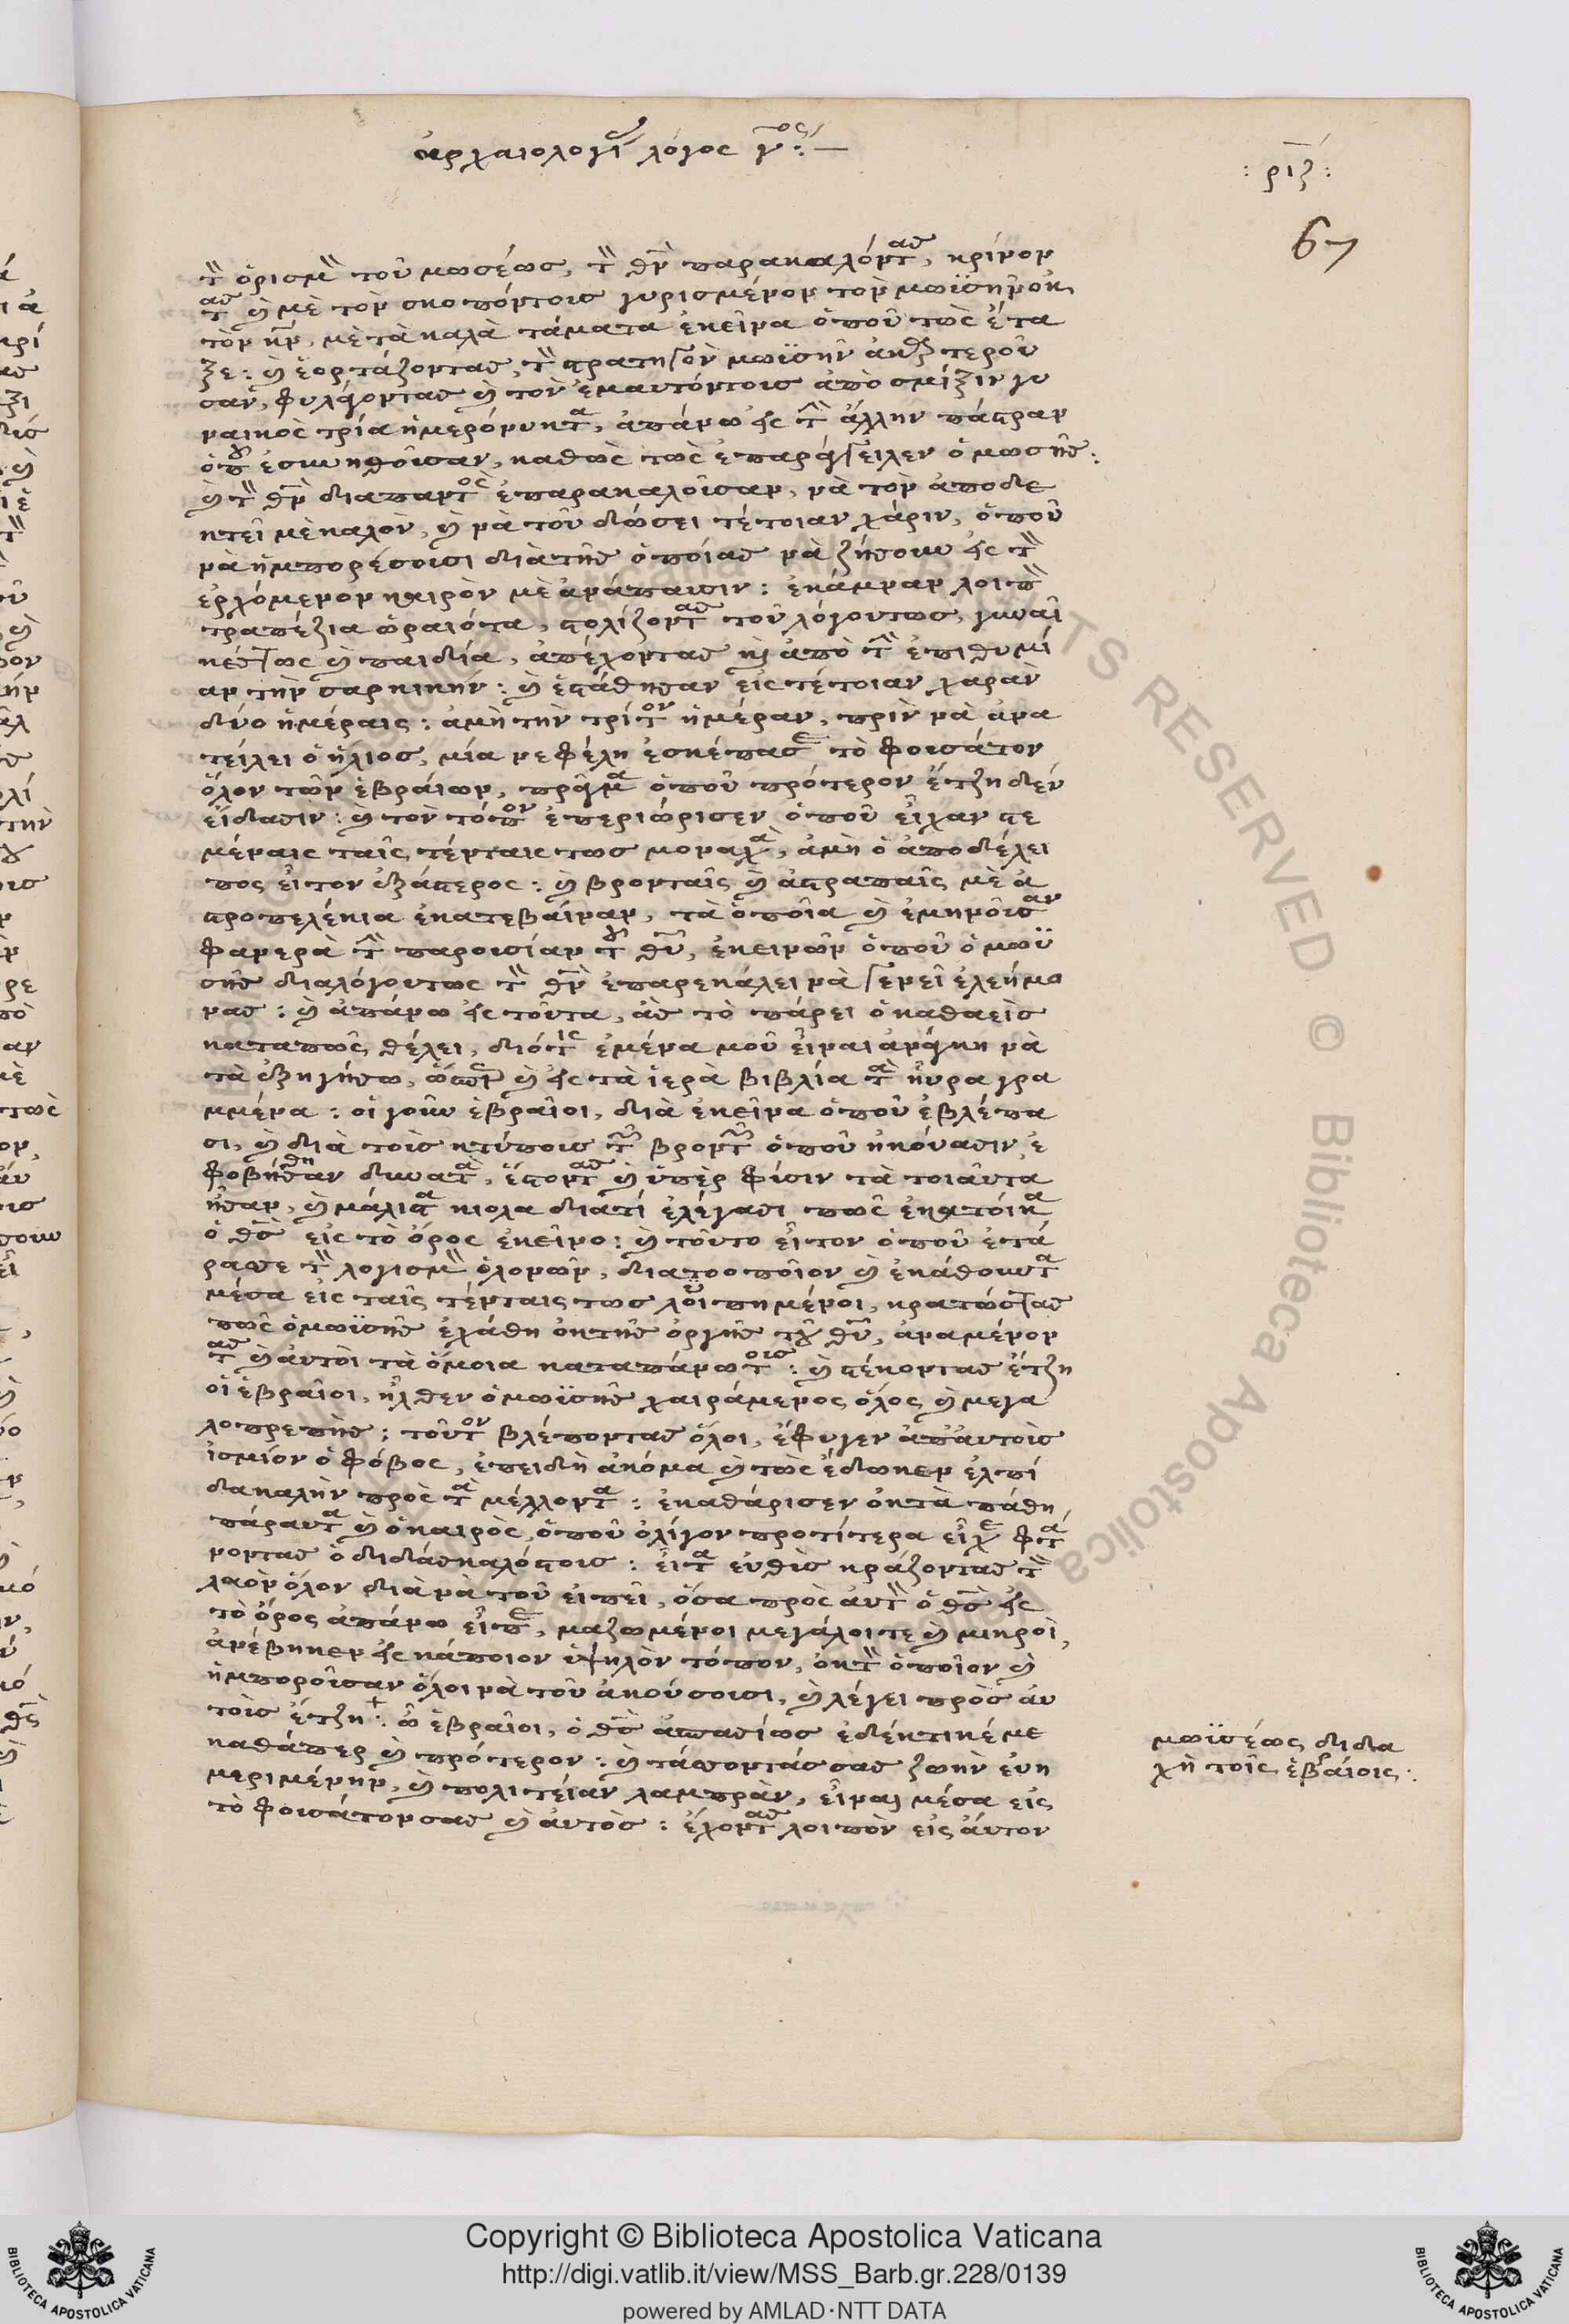 ἀρχαιολογί λόγος γ^ος :—
: ριζ :
67
τ ὁρισμ τοῦ μωσέως, τ θν παρακαλόντ^ας, κρίνον
τ^ας κ μὲ τὸν σκοπόντοις γυρισμένον τὸν μωϋσῆν
μὲ τὰ καλὰ τάματα ἐκεῖνα ὁποῦ τὼς ἔτα
ξε : κ ἑορτάζοντας, μωϋσῆν
σαν, κ τὸν ἐμαυτόντοις ἀπὸ σμίξιν γυ
ναικὸς τρία ἡμερόνυκτ^α, ἀπάνω ἄλλην
καθὼς τὼς ὁ μωσῆς :
κ τ θν διαπαντ^ὸς ἐπαρακαλοῦσαν, νὰ τὸν ἀποδε
κτεῖ μὲ καλὸν, κ νὰ τοῦ δώσει τέτοιαν χάριν, ὁποῦ
νὰ ἡμπορέσουσι διὰ τῆς ὁποίας νὰ ζήσουν
ἐρχόμενον καιρὸν μὲ ἀνάπαυσιν : ἐκάμναν λοιπ
τραπέζια ὡραιότα, στολίζοντ^ας τοῦ λόγουτως, γυναῖ
κ παιδία, ἀπέχοντας κ ἀπὸ τ ἐπιθυμί
αν τὴν σαρκικήν : κ ἐστάθησαν εἰς τέτοιαν χαρὰν
δύο ἡμέραις : ἀμὴ τὴν τρίτ^ον ἡμέραν, πρὶν νὰ ἀνα
τείλει ὁ ἥλιος, μία νεφέλη ἐσκέπασ^ε τὸ φουσάτον
ὅλον τῶν ἑβραίων, ὁποῦ πρότερον ἔτζη δέν
εἴδασιν : κ τὸν τόπ^ον ἐπεριώρισεν ὁποῦ εἶχαν στε
μέναις ταῖς τένταις τως μοναχ^ὰ, ἀμὴ ὁ ἀποδέλει
πος εἶτον ἐξάστερος : κ βρονταῖς κ ἀστραπαῖς μὲ ἀ
στροπελέκια ἐκατεβαίναν, τὰ ὁποῖα κ ἐμηνοῦσ^αν
φανερὰ τ παρουσίαν τ θῦ, ἐκεινῶν ὁποῦ ὁ μωϋ
σῆς διαλόγουτως τ θν ἐπαρεκάλει νὰ ἐλεήμο
νας : κ ἀπάνω τοῦτα, ἂς τὸ πάρει ὁ καθαεὶς
καταπῶς θέλει, ἐμένα μοῦ εἶναι ἀνάγκη νὰ
τὰ ἐξηγήσω, κ τὰ ἱερὰ βιβλία τ^ὰ ηὗρα γρα
μμένα : οἱ γοῦν ἑβραῖοι, διὰ ἐκεῖνα ὁποῦ ἐβλέπα
σι, κ διὰ τοὺς κτύπους τ βροντ ὁποῦ ἠκούασιν, ἐ
φοβήθησαν δυνατ^ὰ, ἔστοντ^ας κ ὑπὲρ φύσιν τὰ τοιαῦτα
ἦσαν, κ μάλιστ^α κιόλα διατὶ ἐλέγασι πῶς ἐκατόικ^α
ὁ θς εἰς τὸ ὄρος ἐκεῖνο : κ τοῦτο εἶτον ὁποῦ ἐτά
ραξε τ λογισμ ὁλονῶν, διατοοποῖον κ ἐκάθουντ^α
μέσα εἰς ταῖς τένταις τως λυπημένοι, κρατώστας
πῶς ὁ μωϋσῆς ἐχάθη ὀκτῆς ὀργῆς τ θῦ, ἀναμένον
τ^ας κ αὐτοὶ τὰ ὅμοια καταπάνωτ^οις : κ στέκοντας ἔτζη
οἱ ἑβραῖοι, ἦλθεν ὁ μωϋσῆς χαιράμενος ὅλος κ μεγα
λοπρεπὴς : τοῦτ^ον βλέποντας ὅλοι, ἔφυγεν ἀπ᾽ αὐτοὺς
ἰσμίον ὁ φόβος, ἐπειδὴ ἀκόμα κ τὼς ἔδωκεν ἐλπί
δα καλὴν πρὸς τ^ὰ μέλλοντ^α : ἐκαθάρισεν ὀκτὰ πάθη
πάραυτ^α κ ὁ καιρὸς, ὁποῦ ὀλίγον προτίτερα εἶχ^ε φτ^ά
νοντας ὁ διδάσκαλόστους : εἶτ^α εὐθὺς κράζοντας τ
λαὸν ὅλον διὰ νὰ τοῦ εἰπεῖ, ὅσα πρὸς αὐτ ὁ θς
τὸ ὄρος ἀπάνω εἶπ^ε, μαζωμένοι μεγάλοι τε κ μικροὶ,
ἀνέβηκεν κάποιον ὑψηλὸν τόπον, ὀκτ ὁποῖον κ
ἡμποροῦσαν ὅλοι νὰ τοῦ ἀκούσουσι, κ λέγει πρὸς αὐ
τοὺς ἔτζη : ὦ ἑβραῖοι, ὁ θς ἐδέκτικέ με
καθάπερ κ πρότερον : κ τάσσοντάς σας ζωὴν εὐη
μεριμένην, κ πολιτείαν λαμπρὰν, εἶναι μέσα εἰς
τὸ φουσάτον σας κ αὐτὸς : ἔχοντ^ας λοιπὸν εἰς αὐτον
μωϋσέως διδα
χὴ τοῖς ἑβραίοις :
Copyright © Biblioteca Apostolica Vaticana
http://digi.vatlib.it/view/MSS_Barb.gr.228/0139
powered by AMLAD·NTT DATA
BIBLIOTECA APOSTOLICA VATICANA
BIBLIOTECA APOSTOLICA VATICANA